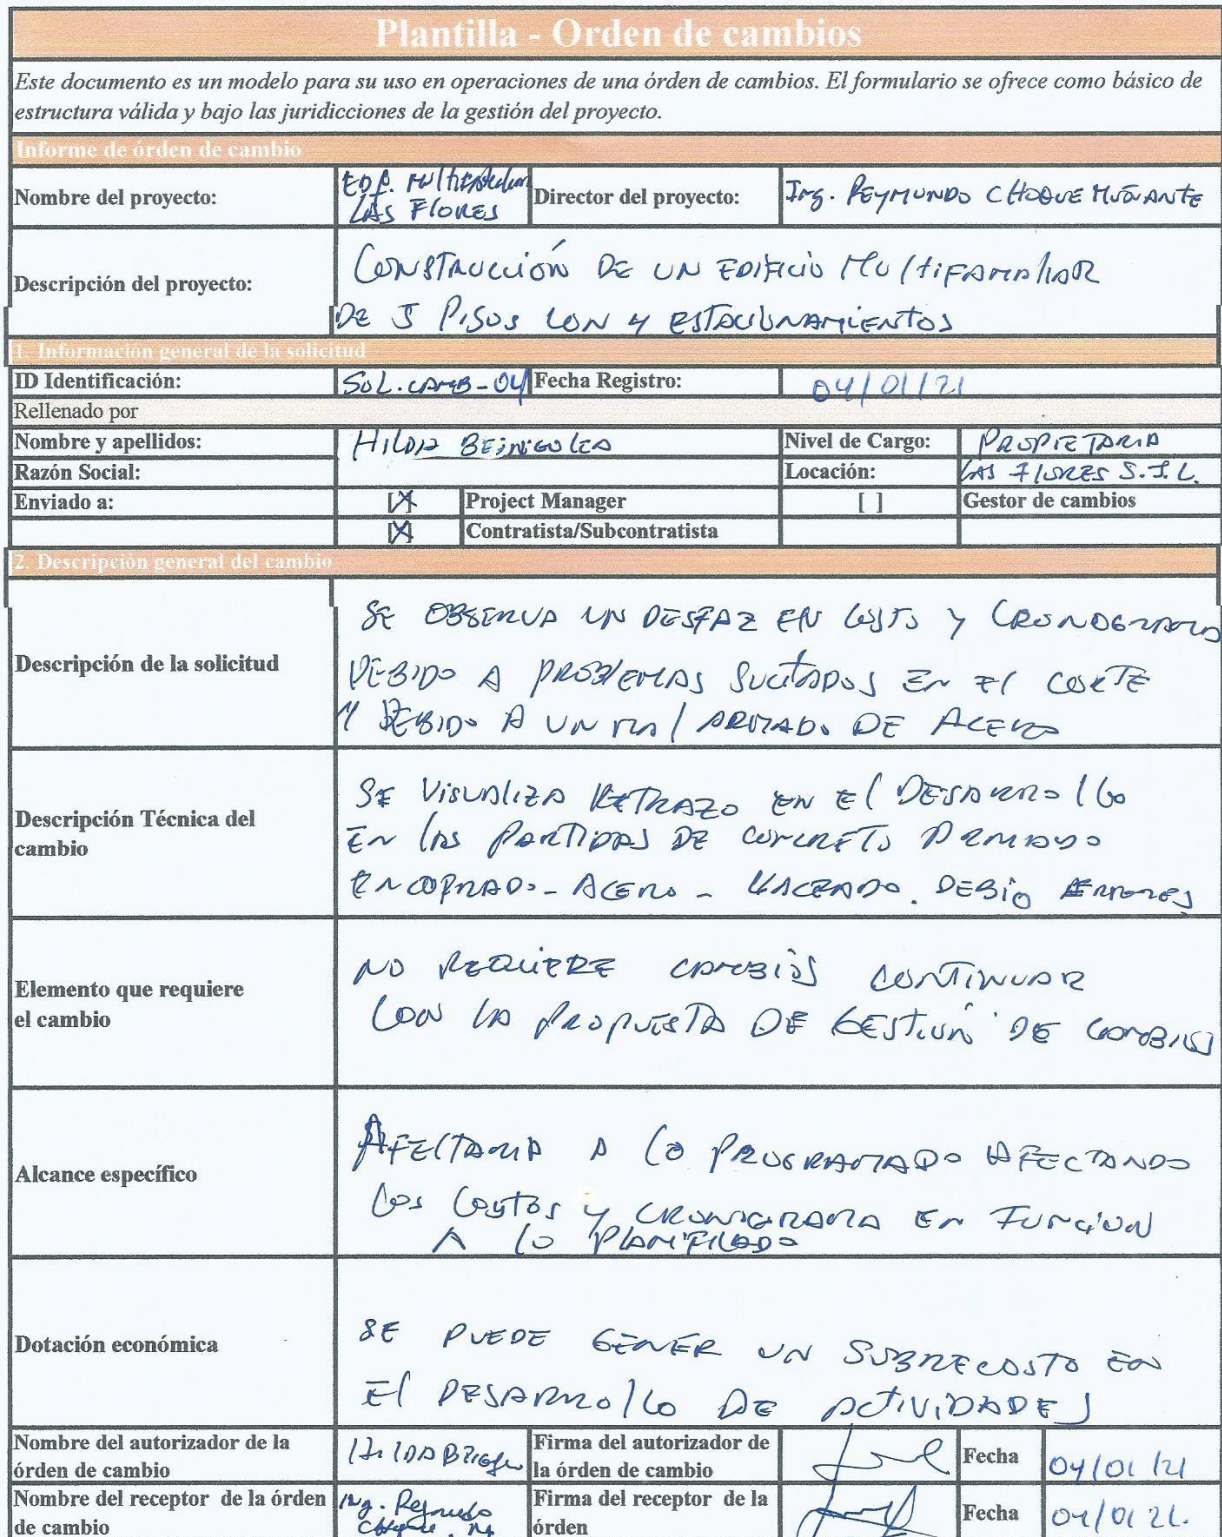 Plantilla - Orden de cambios
Este documento es un modelo para su uso en operaciones de una órden de cambios. El formulario se ofrece como básico de
estructura válida y bajo las juridicciones de la gestión del proyecto.
Informe de órden de cambio
Nombre del proyecto:
LAS FLORES
Director del proyecto:
Ing. REYMUNDO CHOQUE MUÑANTE
Descripción del proyecto:
CONSTRUCCIÓN DE UN EDIFICIO MULTIFAMILIAR
DE 5 PISOS CON 4 ESTACIONAMIENTOS
1. Información general de la solicitud
ID Identificación:
SOL.CAMB-04
Fecha Registro:
04/01/21
Rellenado por
Nombre y apellidos:
HILDA BEINGOLEA
Nivel de Cargo:
PROPIETARIA
Razón Social:
Locación:
LAS FLORES S.J.L.
Enviado a:
[X]
Project Manager
[ ]
Gestor de cambios
[X]
Contratista/Subcontratista
2. Descripción general del cambio
Descripción de la solicitud
SE OBSERVA UN DESFAZ EN COSTO Y CRONOGRAMA
DEBIDO A PROBLEMAS SUCITADOS EN EL CORTE
Y DEBIDO A UN MAL ARMADO DE ACERO
Descripción Técnica del
cambio
SE VISUALIZA RETRAZO EN EL DESARROLLO
EN LAS PARTIDAS DE CONCRETO ARMADO
ENCOFRADO - ACERO - VACEADO. DEBIO ERRORES
Elemento que requiere
el cambio
NO REQUIERE CAMBIOS CONTINUAR
CON LA PROPUESTA DE GESTION DE CAMBIOS
Alcance específico
AFECTARIA A LO PROGRAMADO AFECTANDO
LOS COSTOS Y CRONOGRAMA EN FUNCION
A LO PLANIFICADO
Dotación económica
SE PUEDE GENER UN SUBRECOSTO EN
EL DESARROLLO DE ACTIVIDADES
Nombre del autorizador de la
órden de cambio
Firma del autorizador de
la órden de cambio
Fecha
04/01/21
Nombre del receptor de la órden
de cambio
Ing.
Firma del receptor de la
órden
Fecha
04/01 21.